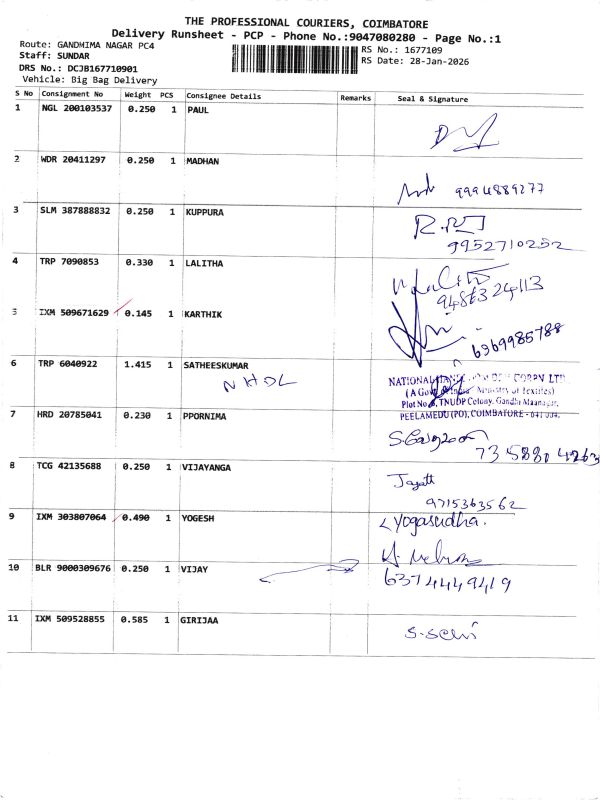 THE PROFESSIONAL COURIERS, COIMBATORE
Delivery Runsheet - PCP - Phone No.:9047080280 - Page No.:1
Route: GANDMIMA NAGAR PC4
RS No.: 1677109
Staff: SUNDAR
RS Date: 28-Jan-2026
DRS No.: DCJB167710901
Vehicle: Big Bag Delivery
S No Consignment No Weight PCS Consignee Details Remarks Seal & Signature
1 NGL 200103537 0.250 1 PAUL
2 WDR 20411297 0.250 1 MADHAN
9994889277
3 SLM 387888832 0.250 1 KUPPURA
9952710252
4 TRP 7090853 0.330 1 LALITHA
9486324113
5 IXM 509671629 0.145 1 KARTHIK
6369985788
6 TRP 6040922 1.415 1 SATHEESKUMAR
NHDL
NATIONAL CORPN LTD
(A Govt of India Ministry of Textiles)
Plot No TNUDP Colony, Gandhi Maanagar,
PEELAMEDU(PO), COIMBATORE - 641 004.
7 HRD 20785041 0.230 1 PPORNIMA
7358804263
8 TCG 42135688 0.250 1 VIJAYANGA
9715363562
9 IXM 303807064 0.490 1 YOGESH
Yogasudha.
10 BLR 9000309676 0.250 1 VIJAY
6374449419
11 IXM 509528855 0.585 1 GIRIJAA
S-Selvi